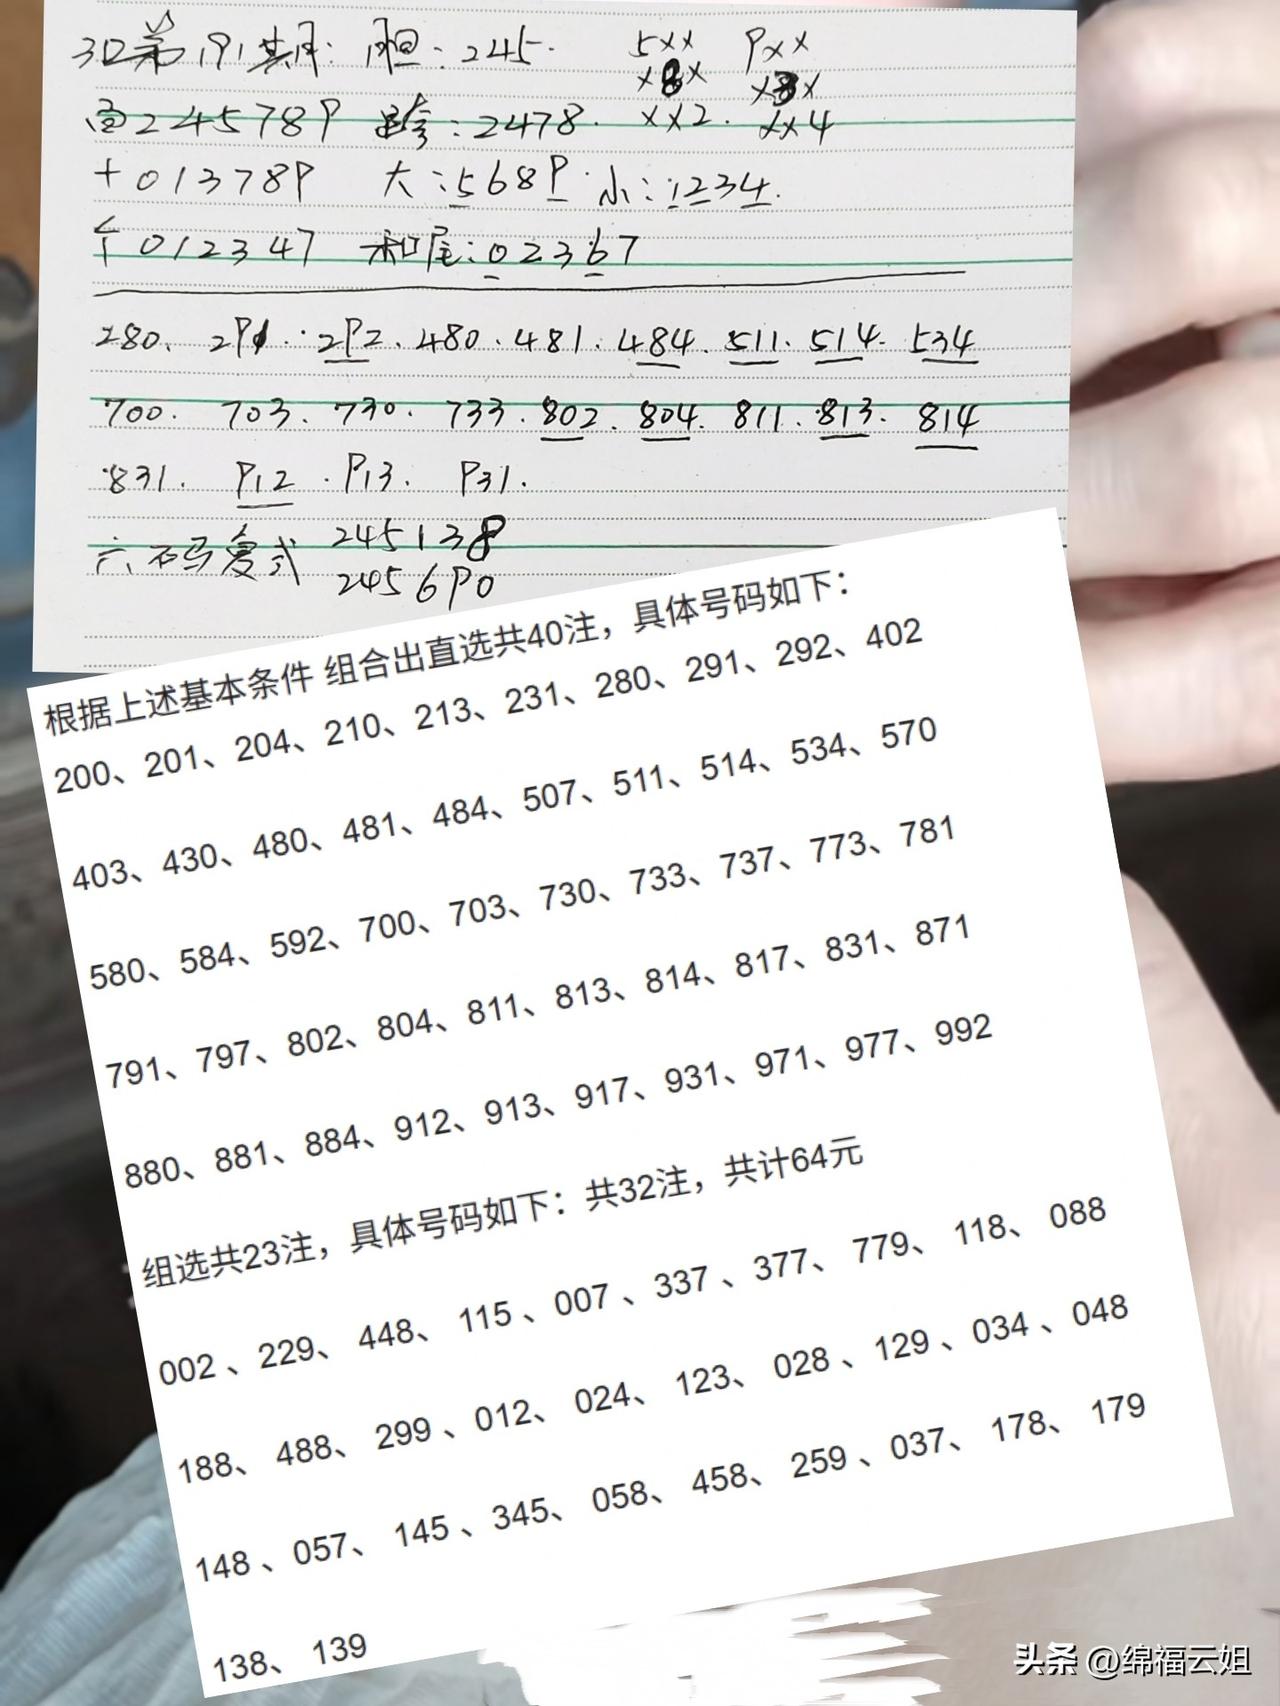 3D第191期: 胆:245. 5×× 9××
×8× ×3×
百245789 跨:2478. ××2. ××4
十013789 大:5689. 小:1234.
个012347 和尾:02367
280、291.292、480.481.484.511.514.534
700.703.730.733.802.804.811.813.814
831.912.913.931.
六码复式 245138
245690
根据上述基本条件 组合出直选共40注，具体号码如下：
200、201、204、210、213、231、280、291、292、402
403、430、480、481、484、507、511、514、534、570
580、584、592、700、703、730、733、737、773、781
791、797、802、804、811、813、814、817、831、871
880、881、884、912、913、917、931、971、977、992
组选共23注，具体号码如下：共32注，共计64元
002 、229、 448、 115 、007 、337 、377、 779、 118、 088
188、 488、 299 、012、 024、 123、 028 、129 、034 、048
148 、057、 145 、345、 058、 458、 259 、037、 178、 179
138、 139
头条 @绵福云姐